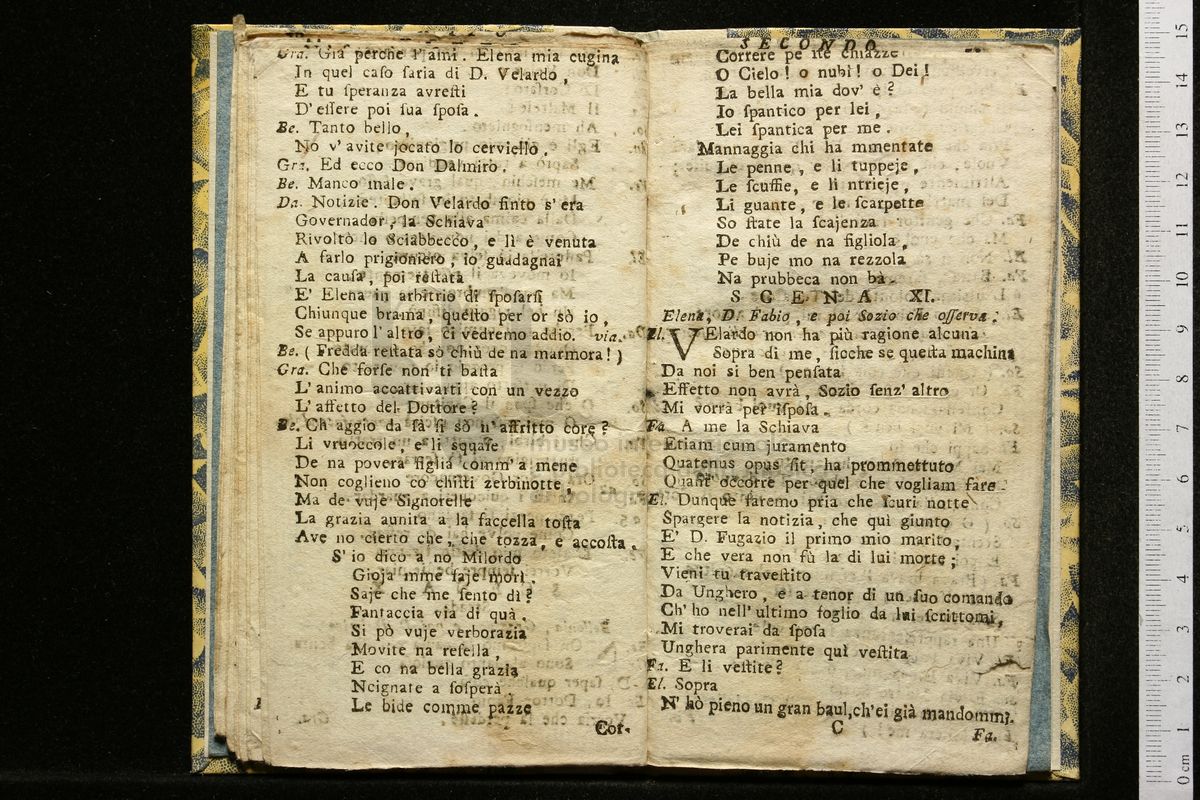 Gra. Già perche l'ami. Elena mia cugina
In quel caſo ſaria di D. Velardo,
E tu ſperanza avreſti
D'eſſere poi ſua ſpoſa.
Be. Tanto bello,
Nò v'avite jocato lo cerviello.
Gra. Ed ecco Don Dalmiro.
Be. Manco male.
Da. Notizie. Don Velardo finto s'era
Governador, la Schiava
Rivoltò lo Sciabbecco, e lì è venuta
A farlo prigioniero, io guadagnai
La cauſa, poi reſtata
E' Elena in arbitrio di ſpoſarſi
Chiunque brama, queſto per or sò io,
Se appuro l'altro, ci vedremo addio. via.
Be. ( Fredda reſtata sò chiù de na marmora! )
Gra. Che forſe non ti baſta
L'animo accattivarti con un vezzo
L'affetto del Dottore?
Be. Ch'aggio da fà ſi sò n'affritto core?
Li vruoccole, e li sqquaſe
De na povera figlia comm'a mene
Non coglieno cò chiſti zerbinotte,
Ma de vuje Signorelle
La grazia aunita a la faccella toſta
Ave no cierto che, che tozza, e accoſta.
S'io dico a no Milordo
Gioja mme faje morì.
Saje che me ſento dì?
Fantaccia via di quà.
Si pò vuje verborazia
Movite na reſella,
E co na bella grazia
Ncignate a ſoſperà
Le bide comme pazze
Cor.
SECONDO
Correre pe ſte chiazze
O Cielo! o nubi! o Dei!
La bella mia dov'è?
Io ſpantico per lei,
Lei ſpantica per me.
Mannaggia chi ha mmentate
Le penne, e li tuppeje,
Le ſcuffie, e li ntrieje,
Li guante, e le ſcarpette
So ſtate la ſcajenza
De chiù de na figliola,
Pe buje mo na rezzola
Na prubbeca non bà.
SCENA XI.
Elena, D. Fabio, e poi Sozio che oſſerva.
El. VElardo non ha più ragione alcuna
Sopra di me, ſicche se queſta machina
Da noi si ben penſata
Effetto non avrà, Sozio ſenz'altro
Mi vorrà per iſpoſa.
Fa. A me la Schiava
Etiam cum juramento
Quatenus opus ſit, ha prommettuto
Quant'occorre per quel che vogliam fare.
El. Dunque faremo pria che ſcuri notte
Spargere la notizia, che quì giunto
E' D. Fugazio il primo mio marito,
E che vera non fù la di lui morte;
Vieni tu traveſtito
Da Unghero, e a tenor di un ſuo comando
Ch'ho nell'ultimo foglio da lui ſcrittomi,
Mi troverai da ſpoſa
Unghera parimente quì veſtita
Fa. E li veſtite?
El. Sopra
N'hò pieno un gran baul, ch'ei già mandommi.
C
Fa.